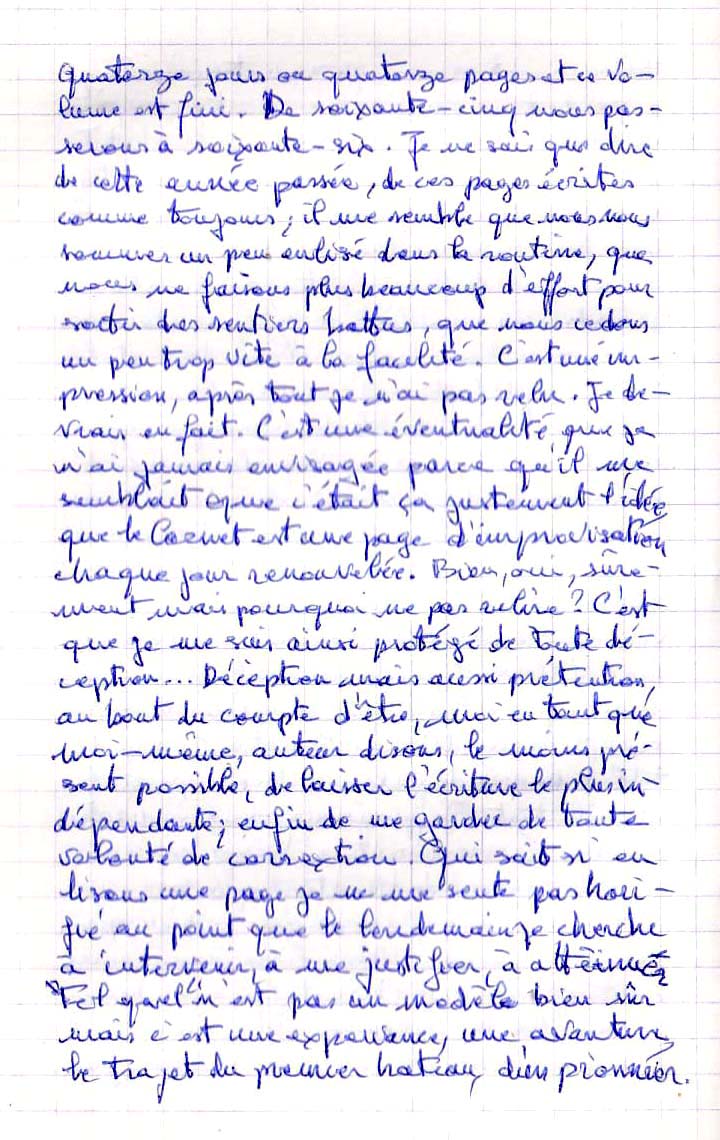 Quatorze jours ou quatorze pages et ce vo-
lume est fini. De soixante-cinq nous pas-
serons à soixante-six. Je ne sais que dire
de cette année passée, de ces pages écrites
comme toujours ; il me semble que nous nous
sommes un peu enlisé dans la routine, que
nous ne faisons plus beaucoup d'effort pour
sortir des sentiers battus, que nous cedons
un peu trop vite à la facilité. C'est une im-
pression, après tout je n'ai pas relu. Je de-
vrais en fait. C'est une éventualité que je
n'ai jamais envisagée parce qu'il me
semblait que c'était ça justement l'idée
que le Carnet est une page d'improvisation
chaque jour renouvelée. Bien, oui, sûre-
ment mais pourquoi ne pas relire ? C'est
que je me suis ainsi protégé de toute dé-
ception... Déception mais aussi prétention,
au bout du compte d'être, moi en tant que
moi-même, auteur disons, le moins pré-
sent possible, de laisser l'écriture le plus in-
dépendante ; enfin de me garder de toute
volonté de correction. Qui sait si en
lisant une page je ne me sente pas horri-
fié au point que le lendemain je cherche
à intervenir, à me justifier, à atténuer
"Tel quel" n'est pas un modèle bien sûr
mais c'est une experience, une aventure,
le trajet du premier bateau, dieu pionnier.